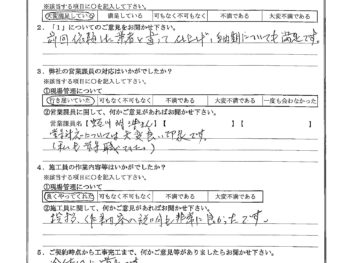 ※該当する項目に○を記入して下さい。
大変満足している 満足している 可も不可も無く 不満である 大変不満である
2.「1」についてのご意見をお聞かせ下さい。
前回依頼した業者と違って仕上げ、納期についても満足です。
3.弊社の営業課員の対応はいかがでしたか?
※該当する項目に○を記入して下さい。
①現場管理について
行き届いていた 可もなく不可もなく 不満である 大変不満である 一度も会わなかった
②営業課員に関して、何かご意見があればお聞かせ下さい。
営業課員名【
営業対応については大変良い印象です。
(私も営業職でした。)
4.施工員の作業内容等はいかがでしたか?
※該当する項目に○を記入して下さい。
①現場管理について
良くやってくれた 可もなく不可もなく 不満である 大変不満である
②施工員に関して、何かご意見があればお聞かせ下さい。
挨拶、作業内容の説明も非常に良かったです。
5.ご契約時点から工事完工まで、何かご意見等がありましたらお聞かせ下さい。